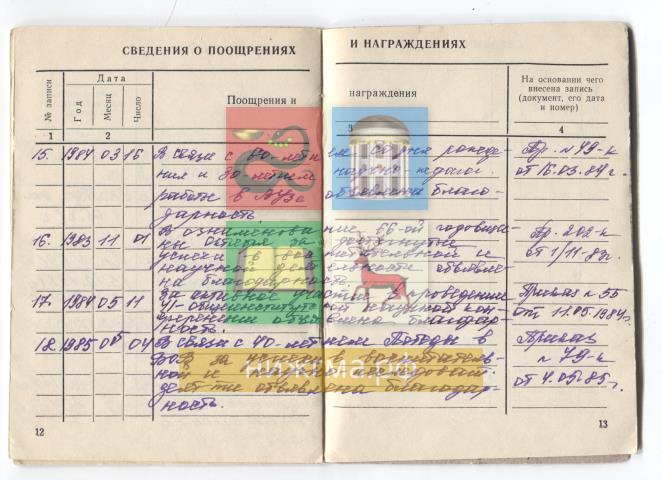 СВЕДЕНИЯ О ПООЩРЕНИЯХ И НАГРАЖДЕНИЯХ
№ записи
Дата
Год
Месяц
Число
Поощрения и награждения
На основании чего
внесена запись
(документ, его дата
и номер)
1 2 3 4
15. 1984 03 16 В связи с 80-летием со дня рожде-
ния и 50-летием научно-педагог.
работы в ВУЗе объявлена благо-
дарность.
Пр. №49-к
от 16.03.84г.
16. 1983 11 01 В ознаменование 66-ой годовщи-
ны за достигнутые
успехи в
научной деятельности объявле-
на благодарность.
Пр. 202-к
от 1/11-83г.
17. 1984 05 11 За активное участие в проведении
общеинститутской научной кон-
ференции объявлена благодар-
ность.
Приказ №55
от 11.05.1984г.
18. 1985 05 04 В связи с 40-летием Победы в
ВОВ за успехи в воспитатель-
ной и научно-исследоват.
деят-ти объявлена благодар-
ность.
Приказ
№79-к
от 4.05.85г.
12
13